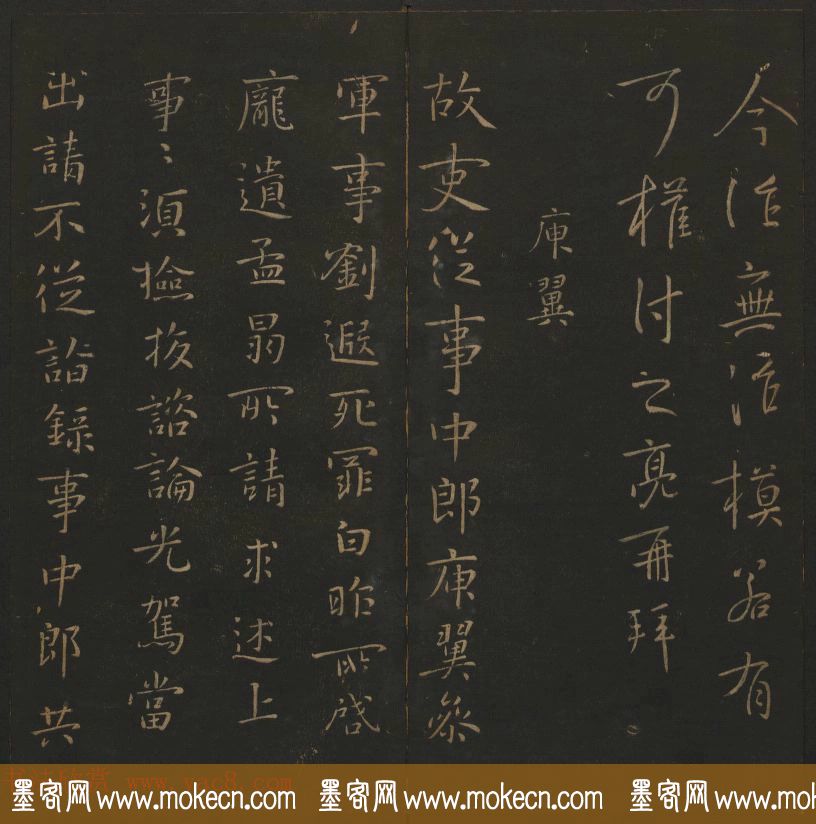 今治無治模若有
可權付之亮再拜
庾翼
故吏從事中郎庾翼參
軍事劉遐死罪白昨所啓
龐遺孟曷所請求述上
事〻須檢校諮論光駕當
出請不從諮錄事中郎共
www.yac8.com
墨客网 www.mokecn.com 墨客网 www.mokecn.com 墨客网 www.mokecn.com